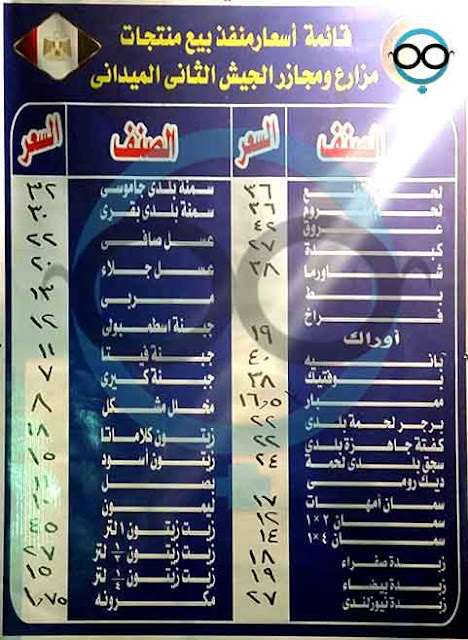 قائمة أسعار منفذ بيع منتجات
مزارع ومجازر الجيش الثانى الميدانى
الصنف السعر الصنف السعر
٣٦ سمنه بلدى جاموسى ٣٢
٣٦ سمنة بلدى بقرى ٣٠
عروق ٤٢ عسل صافى ٢٢
كبدة ٢٧ عسل جلاء ٢٠
شاورما ٢٨ مربى ١٤
بط جبنة اسطمبولى ١٢
فراخ جبنة فيتا ١١
أوراك ١٩ جبنة كيرى ٧
بانيه ٤٠ مخلل مشكل ٨
بوفتيك ٣٨ زيتون كلاماتا ١٨
ممبار ١٦,٥٠ زيتون أسود ١٥
برجر لحمة بلدى ٢٢ بصل
كفتة جاهزة بلدى ٢٢ ليمون
سجق بلدى لحمة ٢٤ زيت زيتون ١ لتر
ديك رومى زيت زيتون ½ لتر
سمان أمهات ١٧ زيت زيتون ¼ لتر ١٥
سمان ٢×١ ١٢ مكرونه
سمان ٤×١ ١٤
زبدة صفراء ١٨
زبدة بيضاء ١٩
زبدة نيوزلندى ٢٧